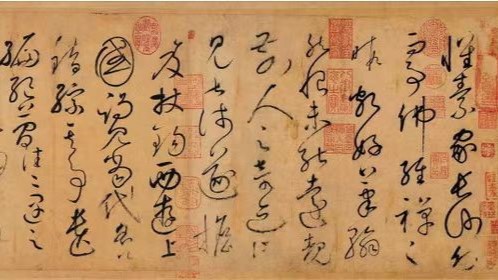 懷素家長沙幼
而事佛經禪之
暇頗好筆翰
然恨未能遠覩
前人之奇迹所
見甚淺遂擔
笈杖錫西遊上
國謁見當代名公
錯綜其事遺
編絕簡往往遇之